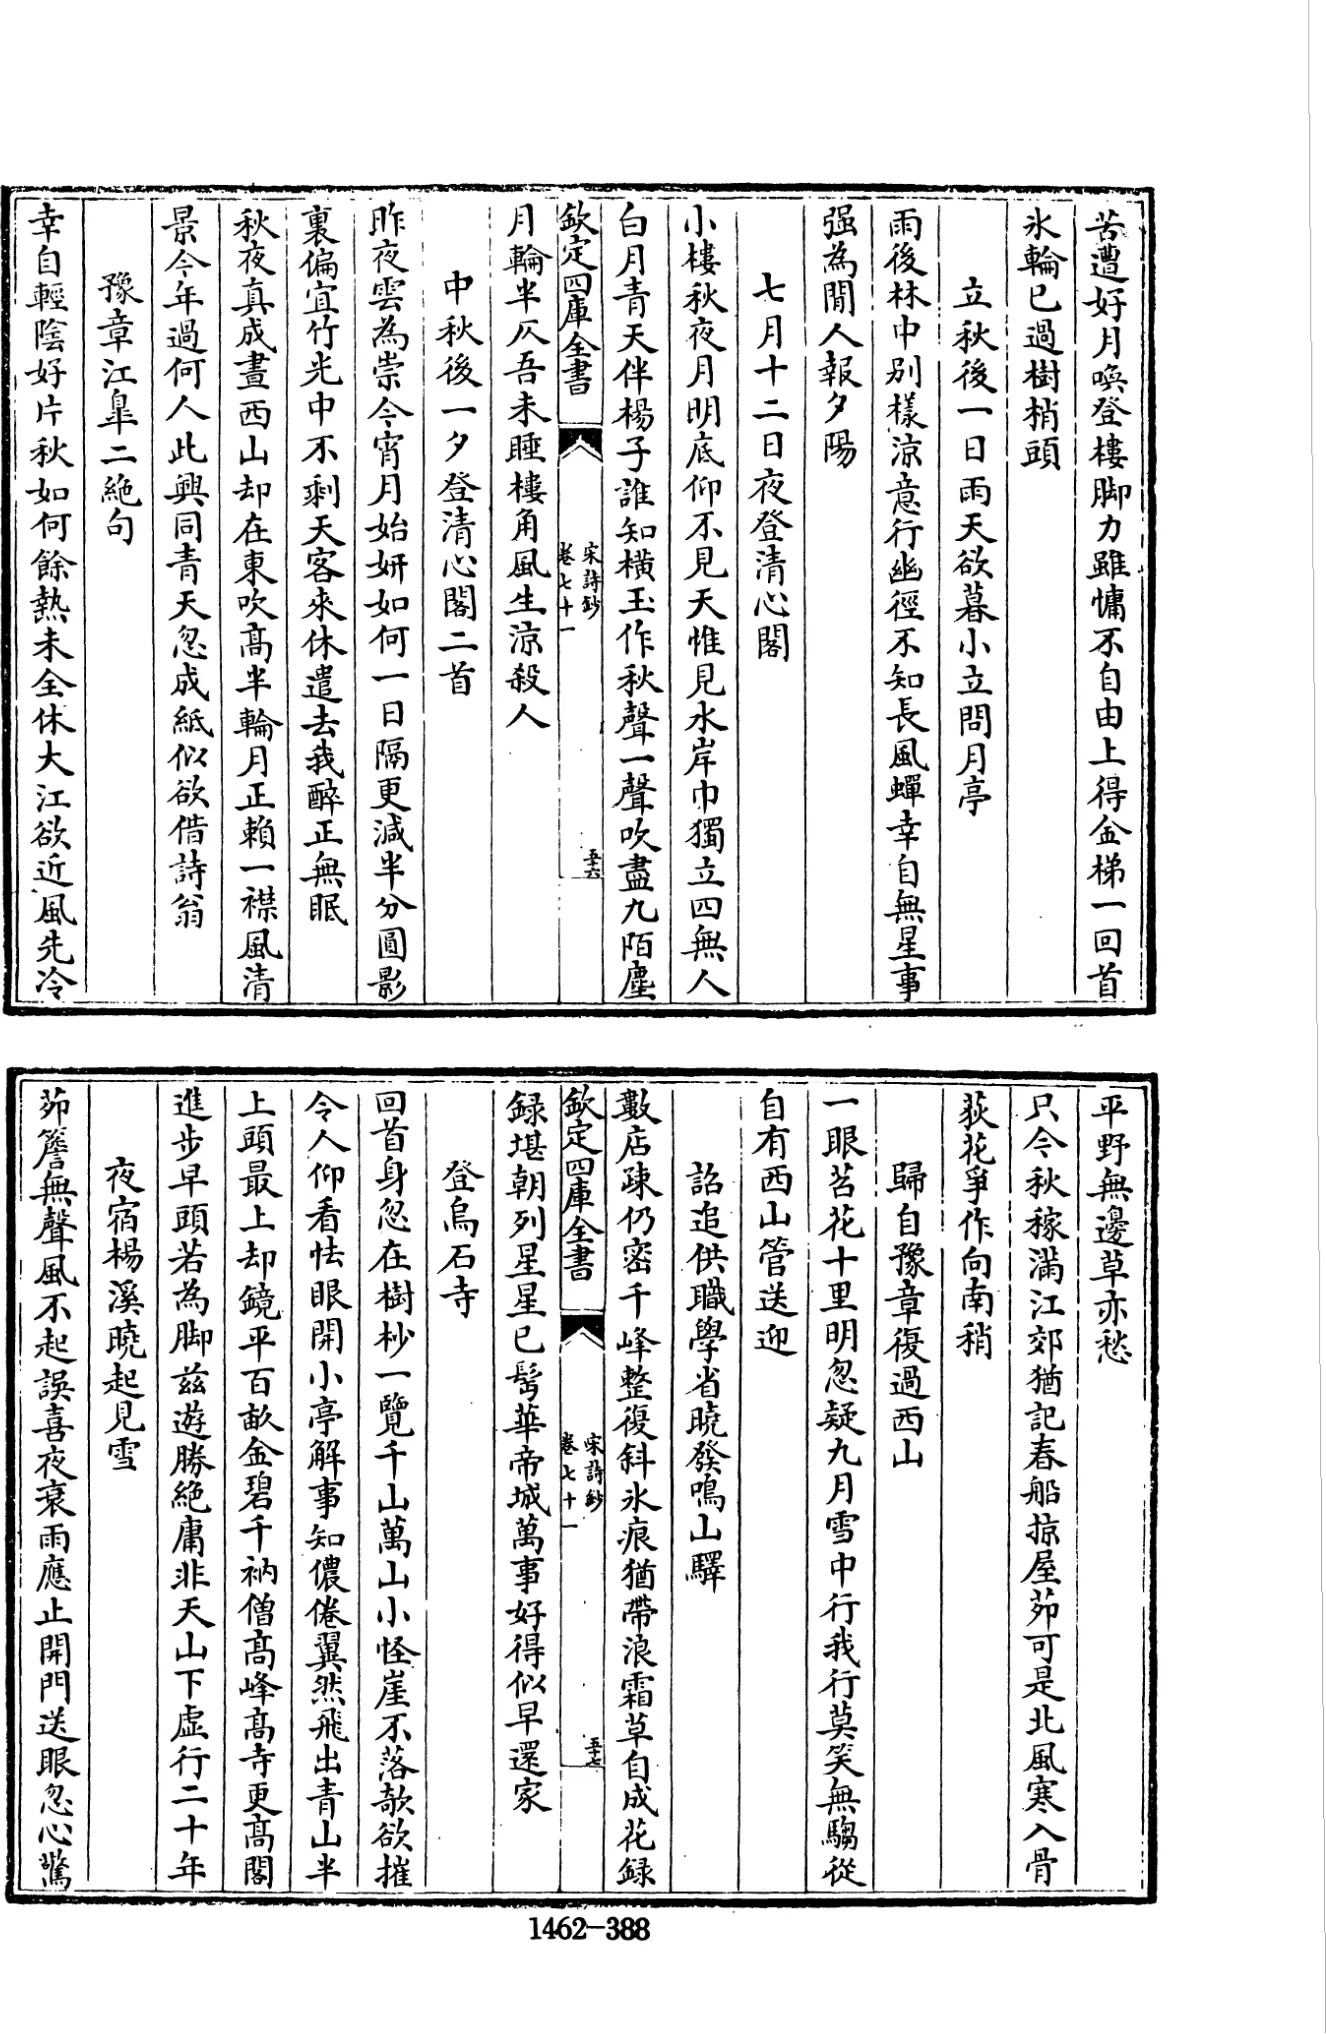 苦遭好月喚登樓脚力雖慵不自由上得金梯一回首
氷輪已過樹梢頭
立秋後一日雨天欲暮小立問月亭
雨後林中别樣凉意行幽徑不知長風蟬幸自無星事
强為閒人報夕陽
七月十二日夜登清心閣
小樓秋夜月明底仰不見天惟見水岸巾獨立四無人
白月青天伴楊子誰知横玉作秋聲一聲吹盡九陌塵
欽定四庫全書
宋詩鈔
卷七十一
五十六
月輪半仄吾未睡樓角風生凉殺人
中秋後一夕登清心閣二首
昨夜雲為祟今宵月始妍如何一日隔更減半分圓影
裏偏宜竹光中不剩天客來休遣去我醉正無眠
秋夜真成晝西山却在東吹髙半輪月正賴一襟風清
景今年過何人此興同青天忽成紙似欲借詩翁
豫章江臯二絶句
幸自輕陰好片秋如何餘熱未全休大江欲近風先冷
平野無邊草亦愁
只今秋稼滿江郊猶記春船掠屋茆可是北風寒入骨
荻花爭作向南稍
歸自豫章復過西山
一眼苕花十里明忽疑九月雪中行我行莫笑無騶從
自有西山管送迎
詔追供職學省曉發鳴山驛
數店疎仍密千峰整復斜氷痕猶帶浪霜草自成花録
欽定四庫全書
宋詩鈔
卷七十一
五十七
録堪朝列星星已髩華帝城萬事好得似早還家
登烏石寺
回首身忽在樹杪一覽千山萬山小怪崖不落欹欲摧
令人仰看怯眼開小亭解事知儂倦翼然飛出青山半
上頭最上却鏡平百畝金碧千衲僧髙峰髙寺更髙閣
進步早頭若為脚兹遊勝絶庸非天山下虚行二十年
夜宿楊溪曉起見雪
茆簷無聲風不起誤喜夜衰雨應止開門送眼忽心驚
1462-388